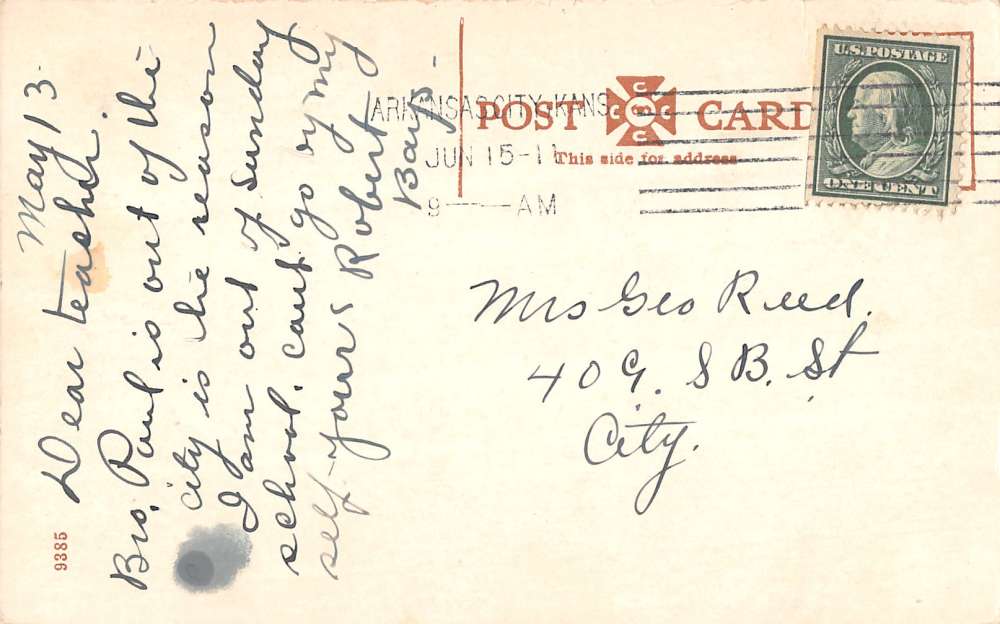 May 13
Dear teasher.
Bro. Paul is out of the
city is the reason
I am out of Sunday
school. cant go by my
self. yours Robert
Bays.
ARKANSAS CITY, KANS.
JUN 15-11
9 AM
POST CARD
This side for address
U.S. POSTAGE
ONE CENT
Mrs Geo Reed.
409. S B. St
City.
9385